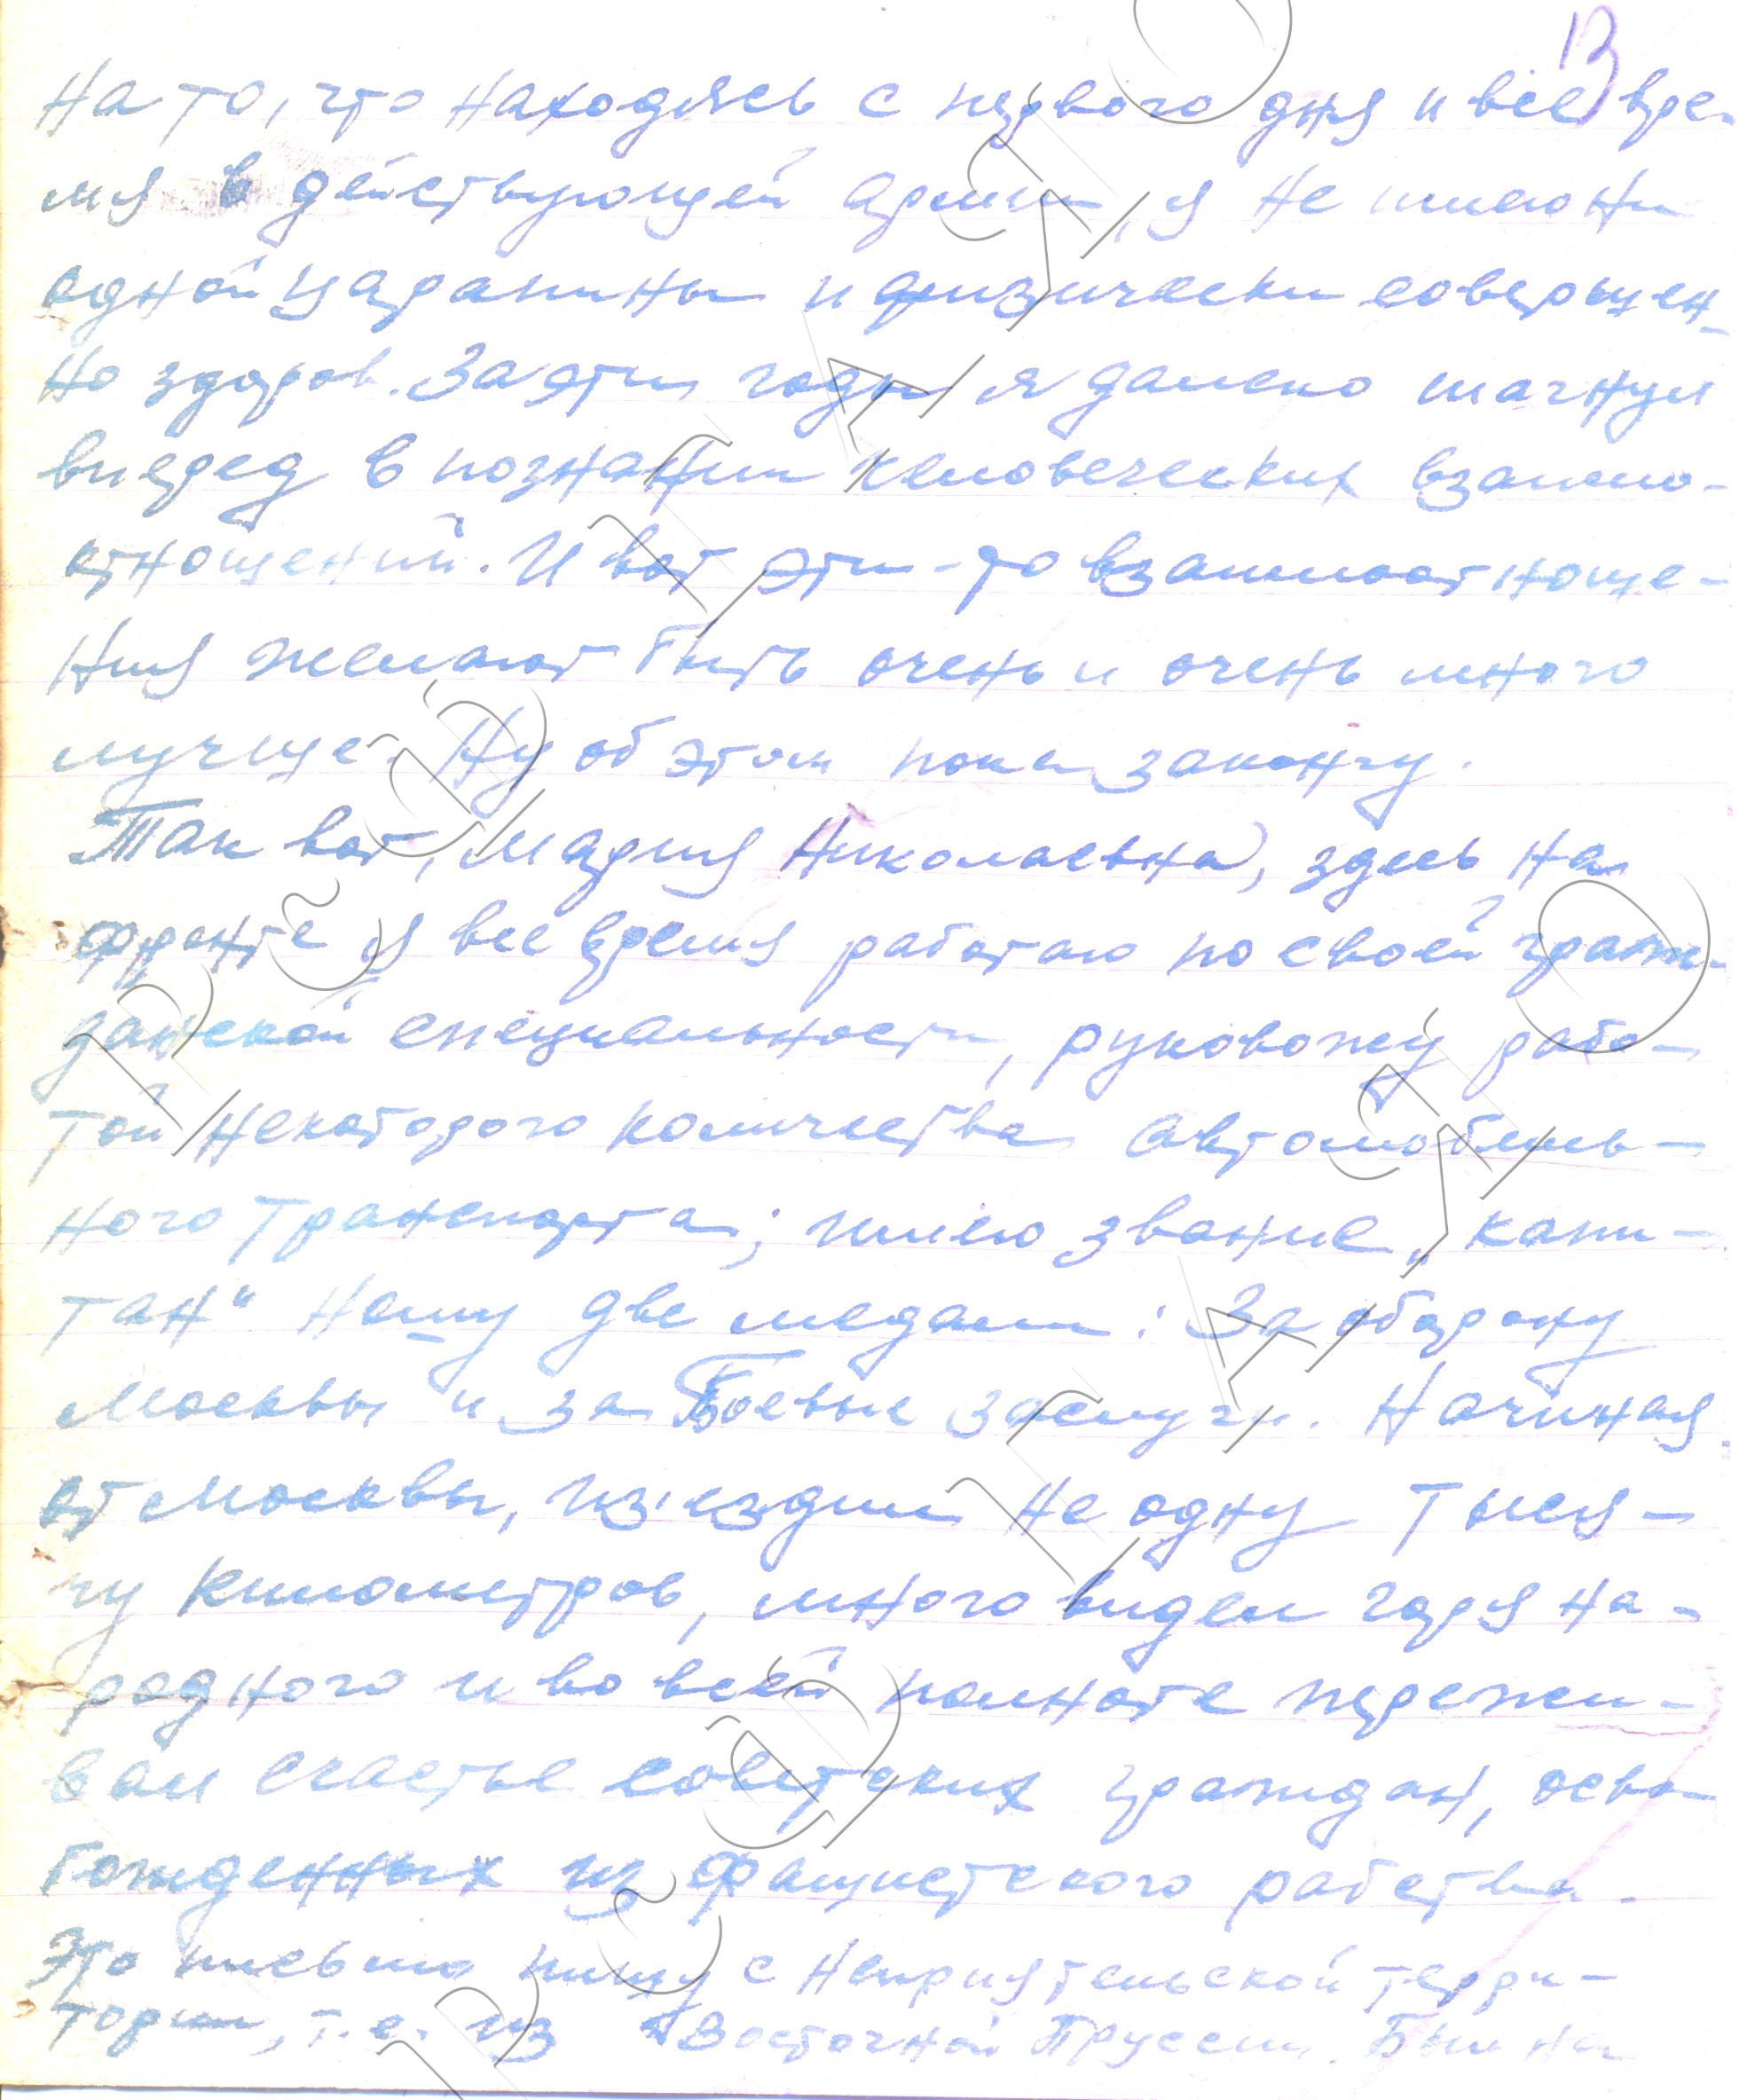 13
На то, что находясь с первого дня и всё вре-
мя в действующей армии, я не имею ни
одной царапины и физически совершен-
но здоров. За эти годы я далеко шагнул
вперед в познании человеческих взаимо-
отношений. И вот эти-то взаимоотноше-
ния желают быть очень и очень много
лучше. Ну об этом пока закончу.
Так вот, Мария Николаевна, здесь на
фронте я все время работаю по своей граж-
данской специальности, руковожу рабо-
той некоторого количества автомобиль-
ного транспорта; имею звание „капи-
тан“ Ношу две медали: За оборону
Москвы и за Боевые заслуги. Начиная
от Москвы, из'ездил не одну тыся-
чу километров, много видел горя на-
родного и во всей полноте пережи-
вал счастье советских граждан, осво-
божденных из фашистского рабства.
Это письмо пишу с неприятельской терри-
тории, т.е. из Восточной Пруссии. Был на